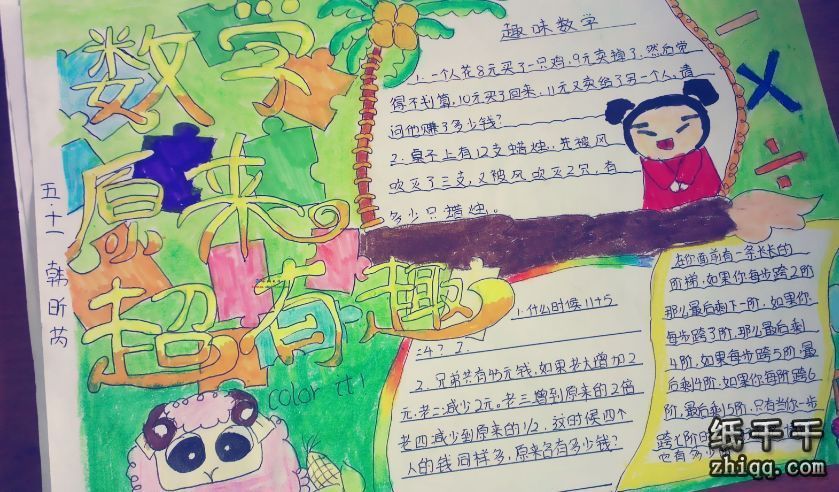 数学
原来。
超有趣
五·十一 韩昕芮
趣味数学
1.一个人花8元买了一只鸡,9元卖掉了,然后觉
得不划算,10元买了回来,11元又卖给了另一个人,请
问他赚了多少钱?
2.桌子上有12支蜡烛,先被风
吹灭了三支,又被风吹灭2只,有
多少只蜡烛。
1.什么时候11+5
=4? 2.
2.兄弟共有45元钱,如果老大增加2
元,老二减少2元。老三增到原来的2倍
老四减少到原来的1/2,这时候四个
人的钱同样多,原来各有多少钱?
color it!
在你面前有一条长长的
阶梯,如果你每步跨2阶
那么最后剩下一阶,如果你
每步跨3阶,那么最后剩
4阶,如果每步跨5阶,最
后剩4阶,如果你每阶跨6
阶,最后剩5阶,只有当你一步
跨七阶
也有多少
纸千千
zhiqq.com